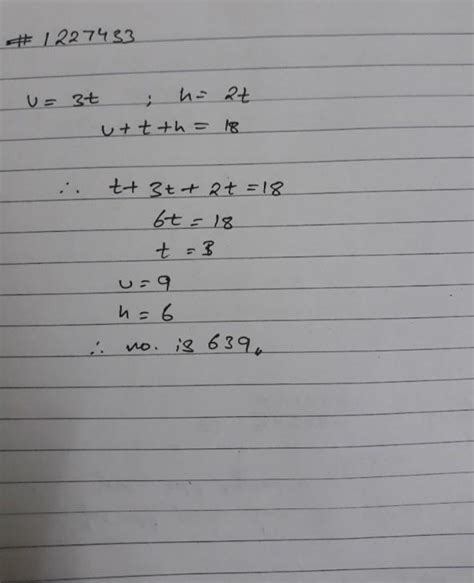 # 1227433
u = 3t ; h = 2t
u + t + h = 18
∴ t + 3t + 2t = 18
6t = 18
t = 3
u = 9
h = 6
∴ no. is 639